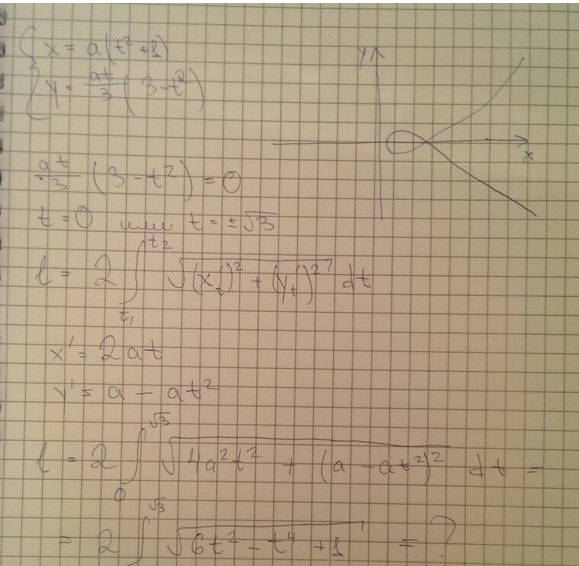 { x = a(t² + 1)
y = at/3 (3 - t²)
y
x
at/3 (3 - t²) = 0
t = 0 или t = ±√3
l = 2 ∫_{t₁}^{t₂} √((x'_t)² + (y'_t)²) dt
x' = 2at
y' = a - at²
l = 2 ∫_{0}^{√3} √(4a²t² + (a - at²)²) dt =
= 2 ∫^{√3} √(6t² - t⁴ + 1) = ?